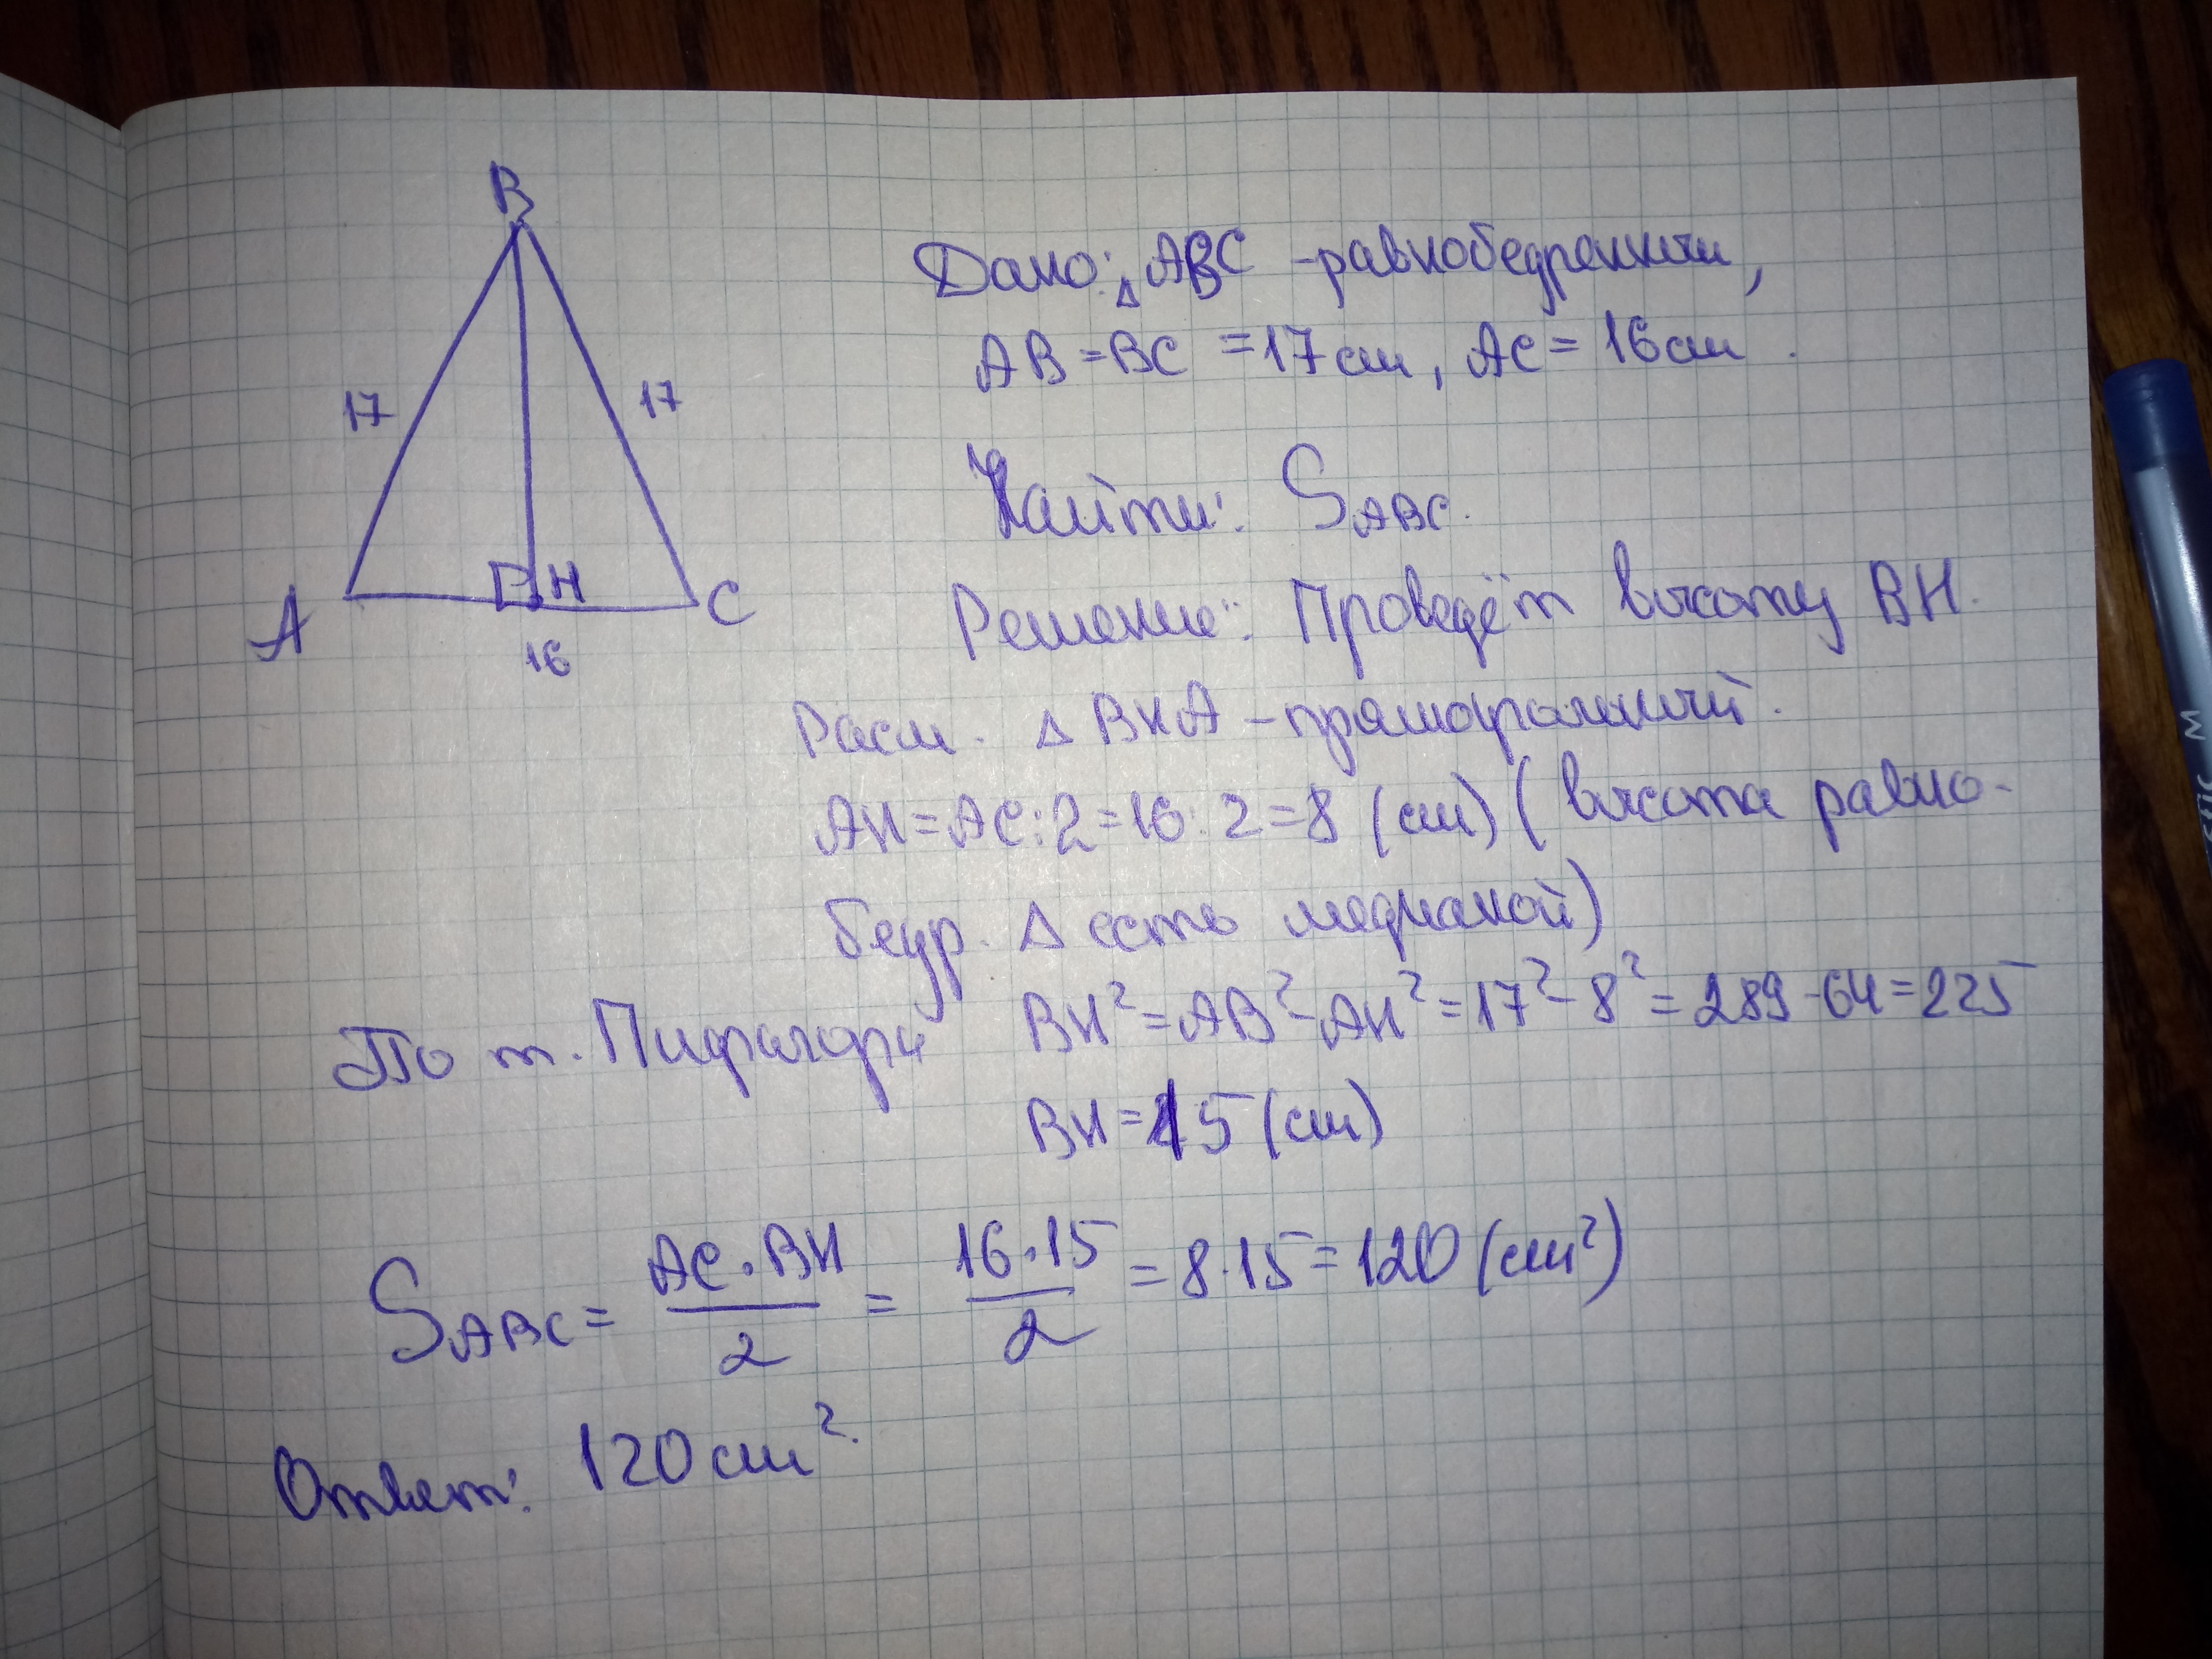 B
17
17
A
H
C
16
Дано: △ ABC - равнобедренный,
AB = BC = 17 см, AC = 16 см.
Найти: S ABC.
Решение: Проведём высоту BH.
Расм. △ BHA - прямоугольный.
AH = AC : 2 = 16 : 2 = 8 (см) (высота равно-
бедр. △ есть медианой)
По т. Пифагора BH² = AB² - AH² = 17² - 8² = 289 - 64 = 225
BH = 15 (см)
S ABC = AC · BH / 2 = 16 · 15 / 2 = 8 · 15 = 120 (см²)
Ответ: 120 см².